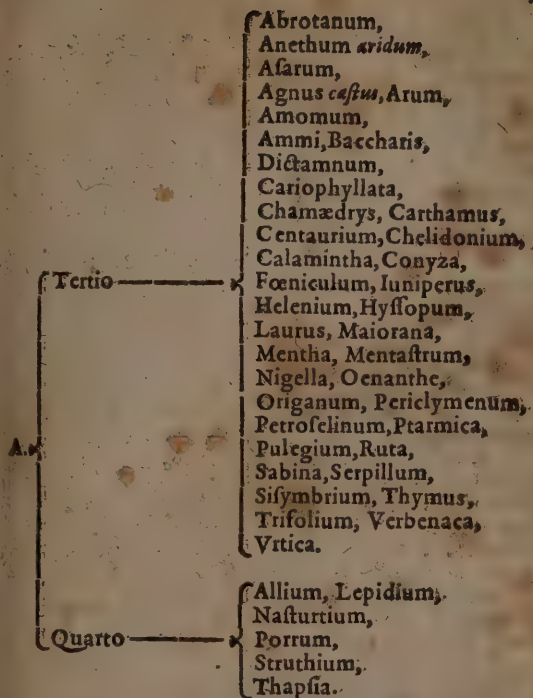 Abrotanum,
Anethum aridum,
Aſarum,
Agnus caſtus, Arum,
Amomum,
Ammi, Baccharis,
Dictamnum,
Cariophyllata,
Chamædrys, Carthamus,
Centaurium, Chelidonium,
Calamintha, Conyza,
Tertio
Fœniculum, Iuniperus,
Helenium, Hyſſopum,
Laurus, Maiorana,
Mentha, Mentaſtrum,
Nigella, Oenanthe,
Origanum, Periclymenum,
Petroſelinum, Ptarmica,
A.
Pulegium, Ruta,
Sabina, Serpillum,
Siſymbrium, Thymus,
Trifolium, Verbenaca,
Vrtica.
Allium, Lepidium,
Naſturtium,
Quarto
Porrum,
Struthium,
Thapſia.